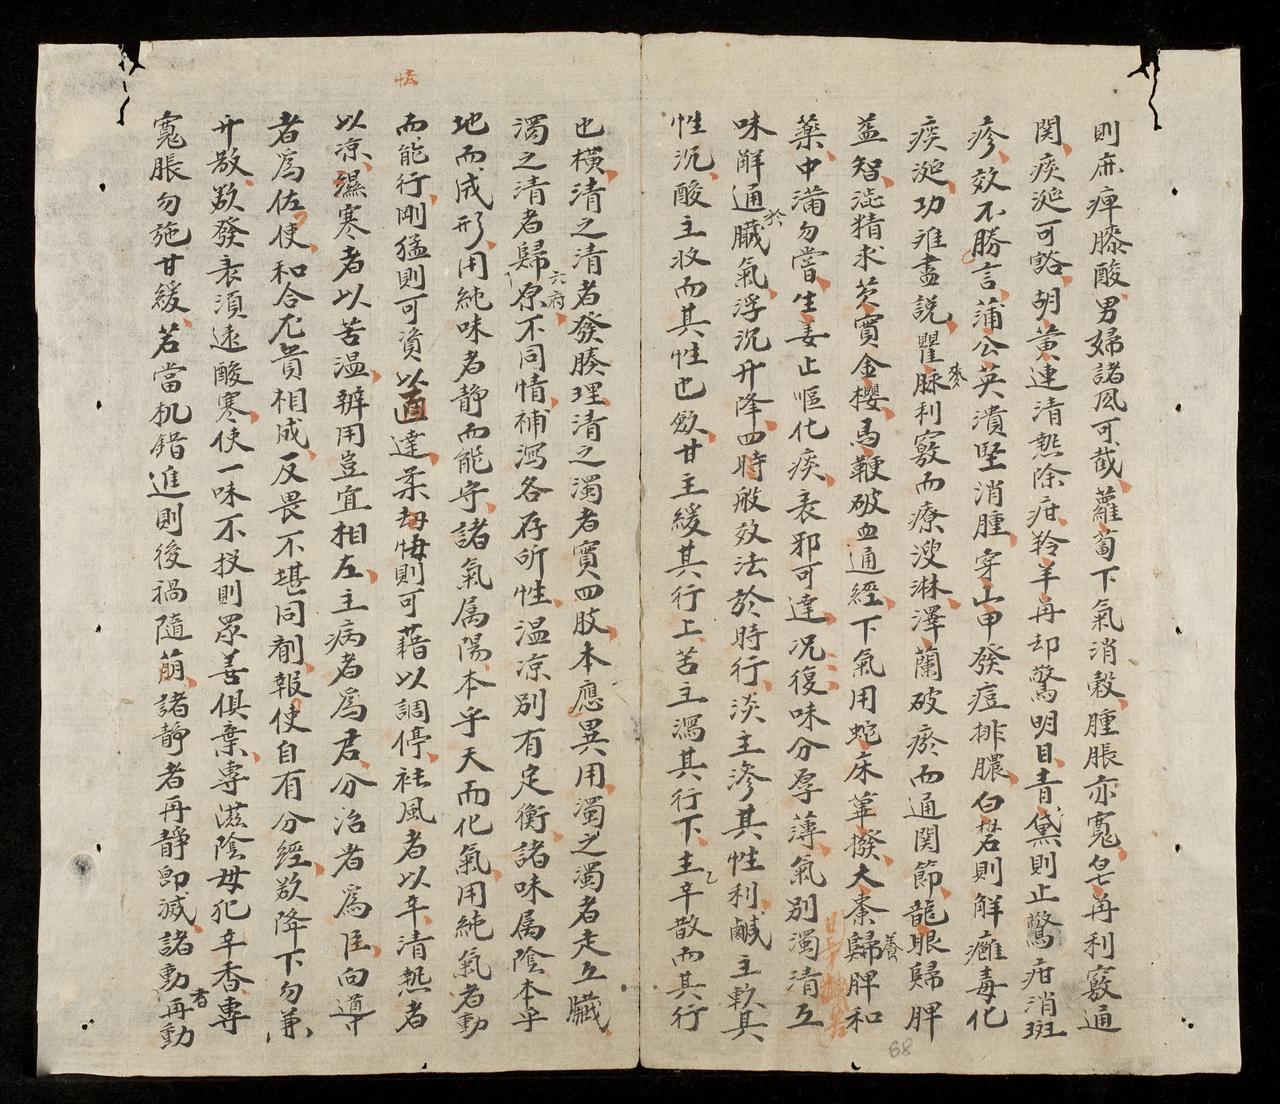 則麻痺膝酸男婦諸風可截蘿蔔下氣消穀腫脹亦寬皂再利竅通
関痰涎可豁胡黄連清熱除疳羚羊再却驚明目青黛則止驚疳消斑
疹効不勝言蒲公英潰堅消腫穿山甲發痘排膿白礬則解癰毒化
痰涎功难盡説瞿脉利竅而療溲淋澤蘭破瘀而通関節龍眼歸脾
麥
益智澁精求芡實金櫻馬鞭破血通經下氣用蛇床萆撥大棗歸脾和
養
藥中滿勿嘗生姜止嘔化痰表邪可達况復味分厚薄氣別濁清五
味觧通臟氣浮沉升降四時般效法於時行淡主滲其性利鹹主軟其
於
性沉酸主收而其性也歛甘主緩其行上苦主瀉其行下主辛散而其行
也横清之清者發腠理清之濁者實四肢本應異用濁之濁者走五臟
濁之清者歸原不同情補瀉各存所性温凉別有定衡諸味属陰本乎
六府
地而成形用純味者静而能守諸氣属陽本乎天而化氣用純氣者動
而能行剛猛則可資以直達柔劫悔則可藉以調停袪風者以辛清熱者
怯
以凉濕寒者以苦温辨用豈宜相左主病者爲君分治者爲臣向導
者爲佐使和合尤貴相成反畏不堪同劑報使自有分經欲降下勿兼
升散欲發表湏遠酸寒使一味不投則眾善俱棄專滋陰毋犯辛香專
寬脹勿施甘緩若當机錯進則後禍隨萠諸静者再静即滅諸動再動
者
68